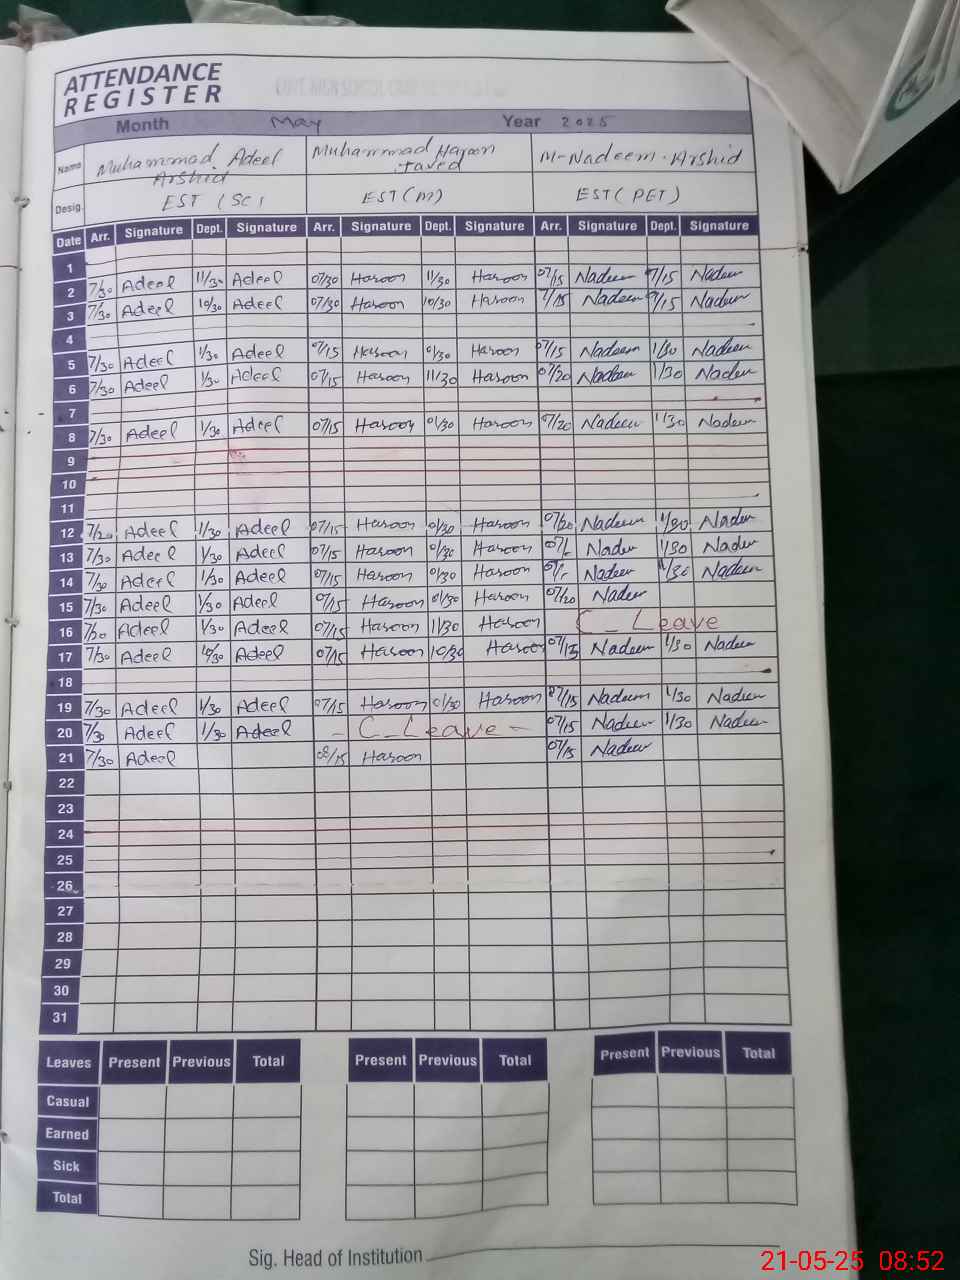 ATTENDANCE
REGISTER
Month May Year 2025
Name Muhammad Adeel Arshid Muhammad Haroon Javed M-Nadeem-Arshid
Desig. EST (SC) EST(M) EST(PET)
Date Arr. Signature Dept. Signature Arr. Signature Dept. Signature Arr. Signature Dept. Signature
1
2 7/30 Adeel 11/30 Adeel 07/30 Haroon 11/30 Haroon 07/15 Nadeem 9/15 Nadeem
3 7/30 Adeel 10/30 Adeel 07/30 Haroon 10/30 Haroon 7/15 Nadeem 9/15 Nadeem
4
5 7/30 Adeel 1/30 Adeel 07/15 Haroon 01/30 Haroon 07/15 Nadeem 1/30 Nadeem
6 7/30 Adeel 1/30 Adeel 07/15 Haroon 11/30 Haroon 07/20 Nadeem 1/30 Nadeem
7
8 7/30 Adeel 1/30 Adeel 07/15 Haroon 01/30 Haroon 07/20 Nadeem 1/30 Nadeem
9
10
11
12 7/20 Adeel 1/30 Adeel 07/15 Haroon 01/30 Haroon 07/20 Nadeem 1/30 Nadeem
13 7/30 Adeel 1/30 Adeel 07/15 Haroon 01/30 Haroon Nadeem 1/30 Nadeem
14 7/30 Adeel 1/30 Adeel 07/15 Haroon 01/30 Haroon Nadeem 1/30 Nadeem
15 7/30 Adeel 1/30 Adeel 07/15 Haroon 01/30 Haroon 07/20 Nadeem
16 7/30 Adeel 1/30 Adeel 07/15 Haroon 11/30 Haroon C-Leave
17 7/30 Adeel 10/30 Adeel 07/15 Haroon 10/30 Haroon 07/15 Nadeem 1/30 Nadeem
18
19 7/30 Adeel 1/30 Adeel 07/15 Haroon 01/30 Haroon 07/15 Nadeem 1/30 Nadeem
20 7/30 Adeel 1/30 Adeel - C-Leave - 07/15 Nadeem 1/30 Nadeem
21 7/30 Adeel 08/15 Haroon 07/15 Nadeem
22
23
24
25
26
27
28
29
30
31
Leaves Present Previous Total Present Previous Total Present Previous Total
Casual
Earned
Sick
Total
Sig. Head of Institution
21-05-25 08:52